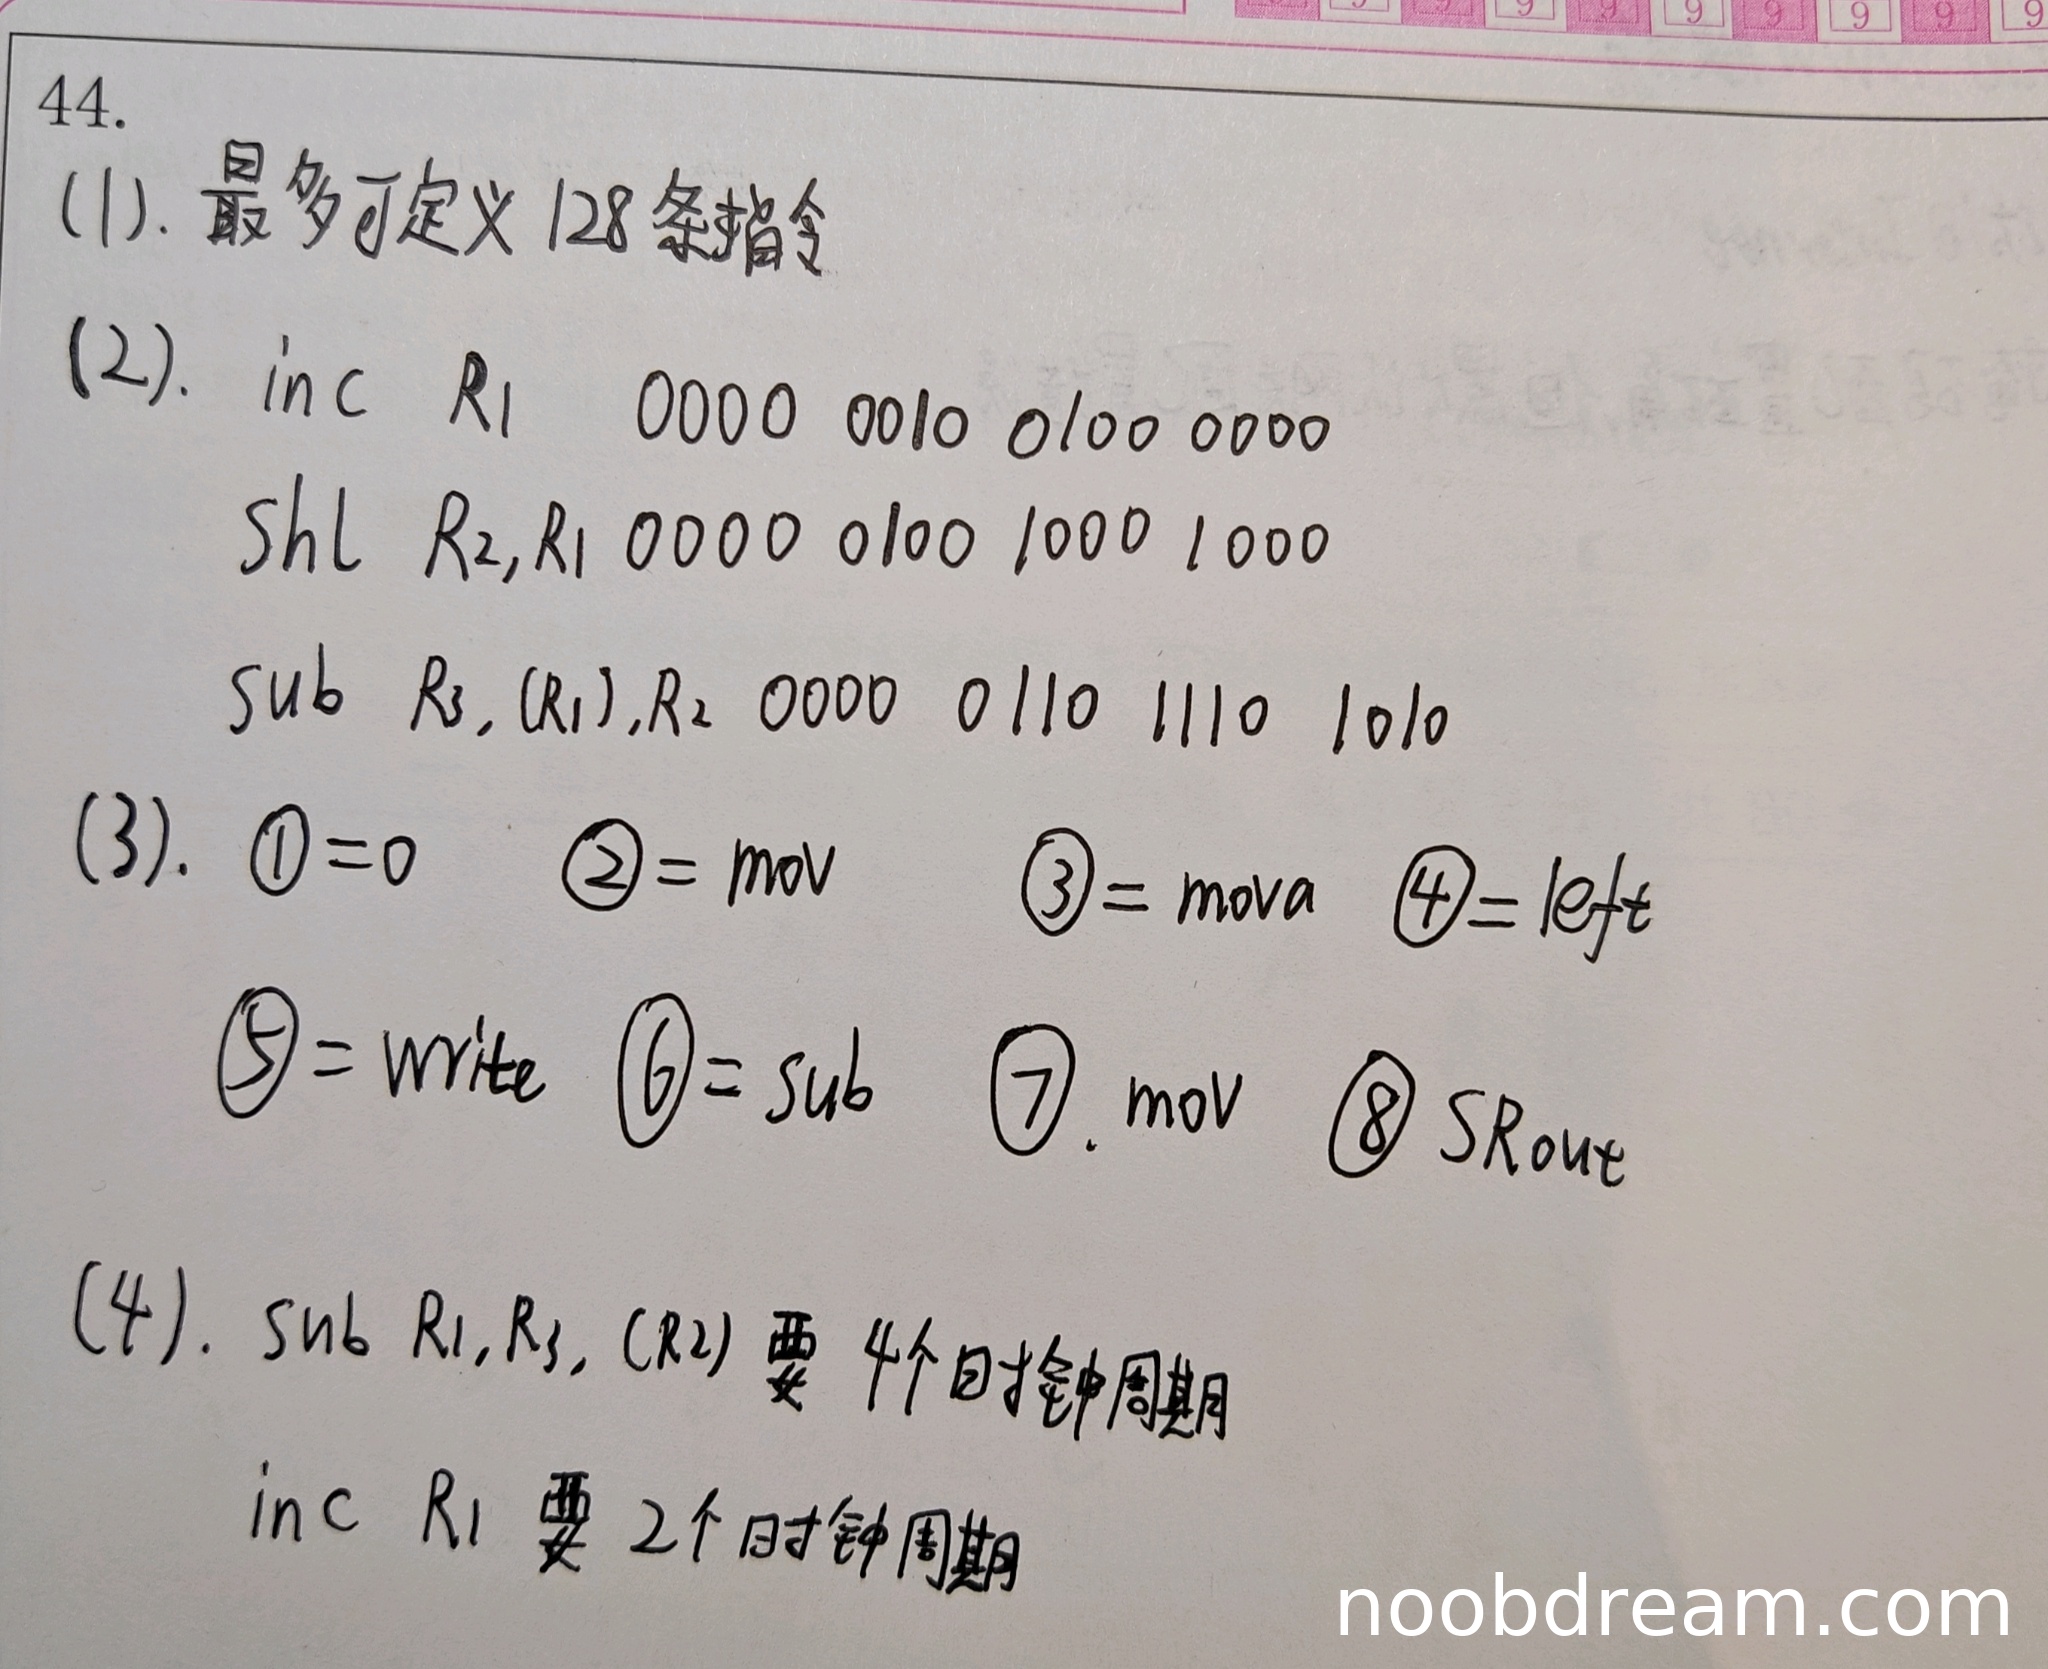 9 9 9 9 9 9 9 9 9 9
44.
(1). 最多可定义 128 条指令
(2). inc R1 0000 0010 0100 0000
shl R2, R1 0000 0100 1000 1000
sub R3, (R1), R2 0000 0110 1110 1010
(3). ①=0 ②= mov ③= mova ④= left
⑤= write ⑥= sub ⑦. mov ⑧ SRout
(4). sub R1, R3, (R2) 要 4个时钟周期
inc R1 要 2个时钟周期
noobdream.com